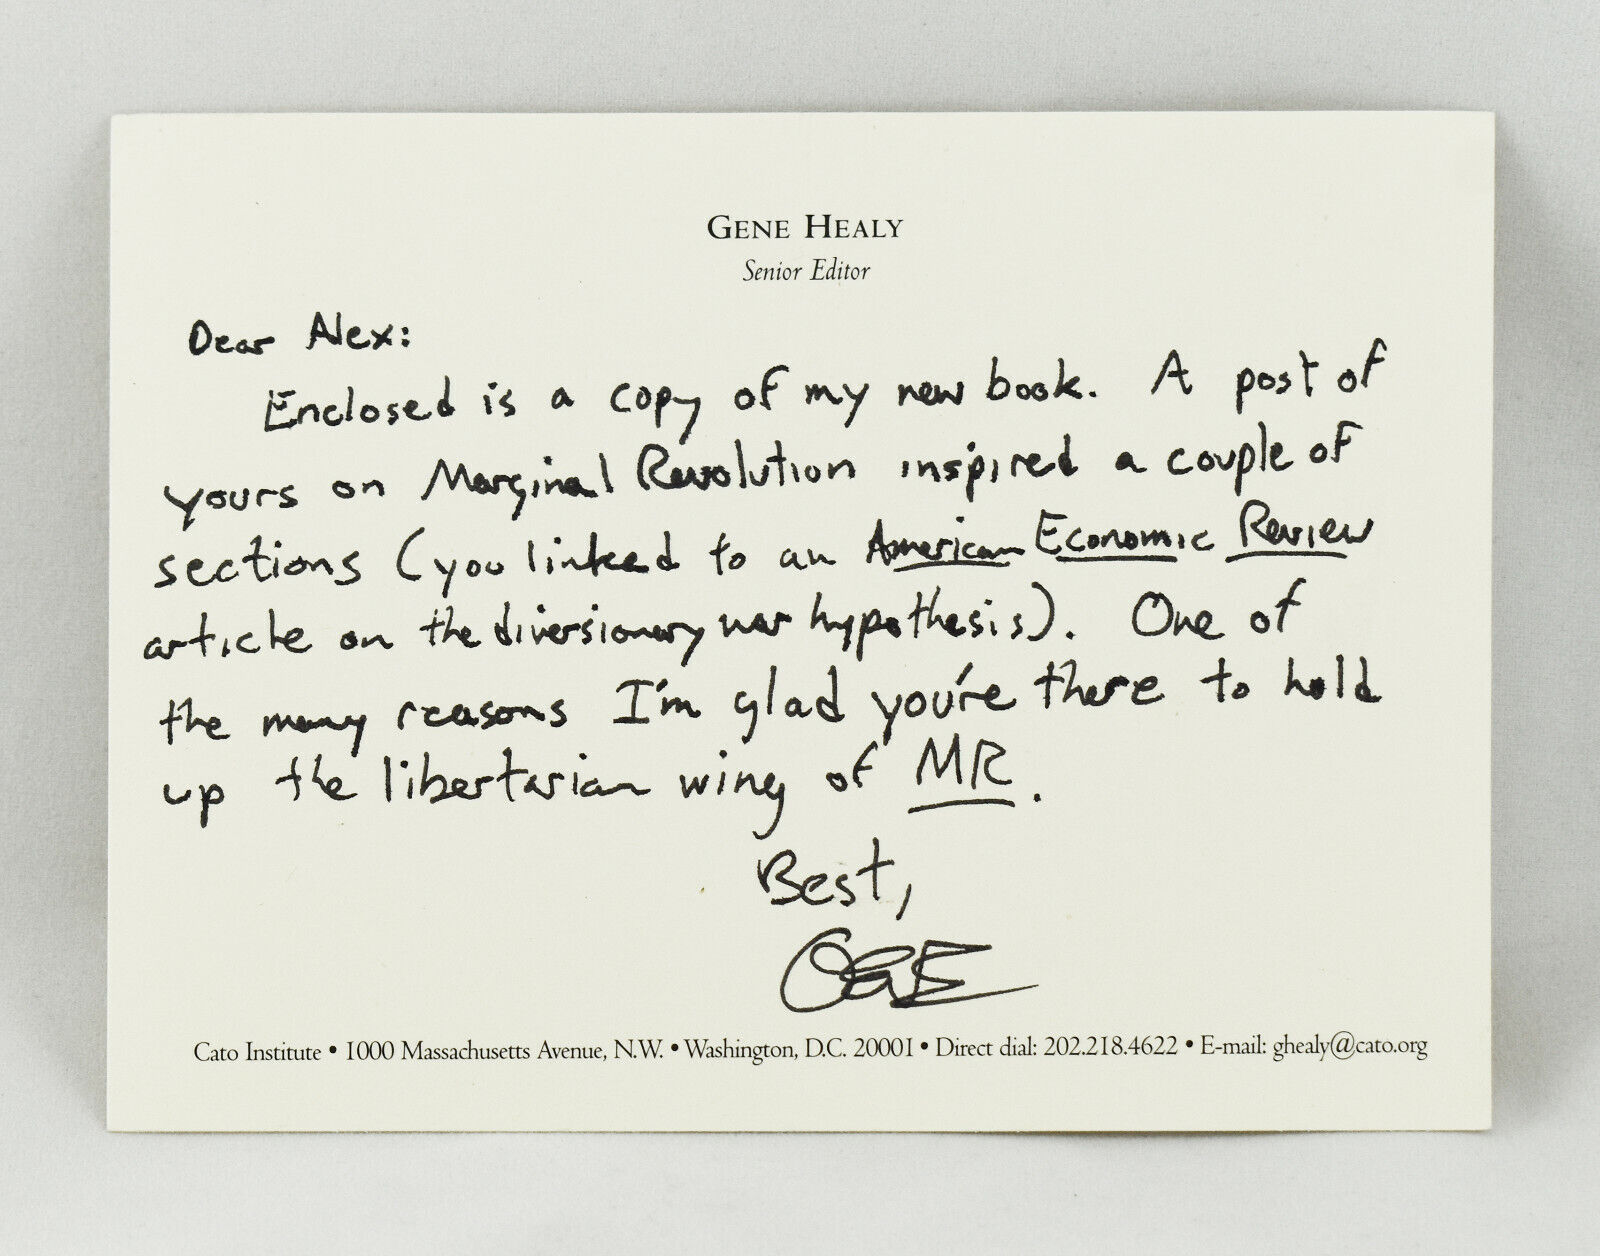 GENE HEALY
Senior Editor
Dear Alex:
Enclosed is a copy of my new book. A post of
yours on Marginal Revolution inspired a couple of
sections (you linked to an American Economic Review
article on the diversionary war hypothesis). One of
the many reasons I'm glad you're there to hold
up the libertarian wing of MR.
Best,
Cato Institute • 1000 Massachusetts Avenue, N.W. • Washington, D.C. 20001 • Direct dial: 202.218.4622 • E-mail: ghealy@cato.org